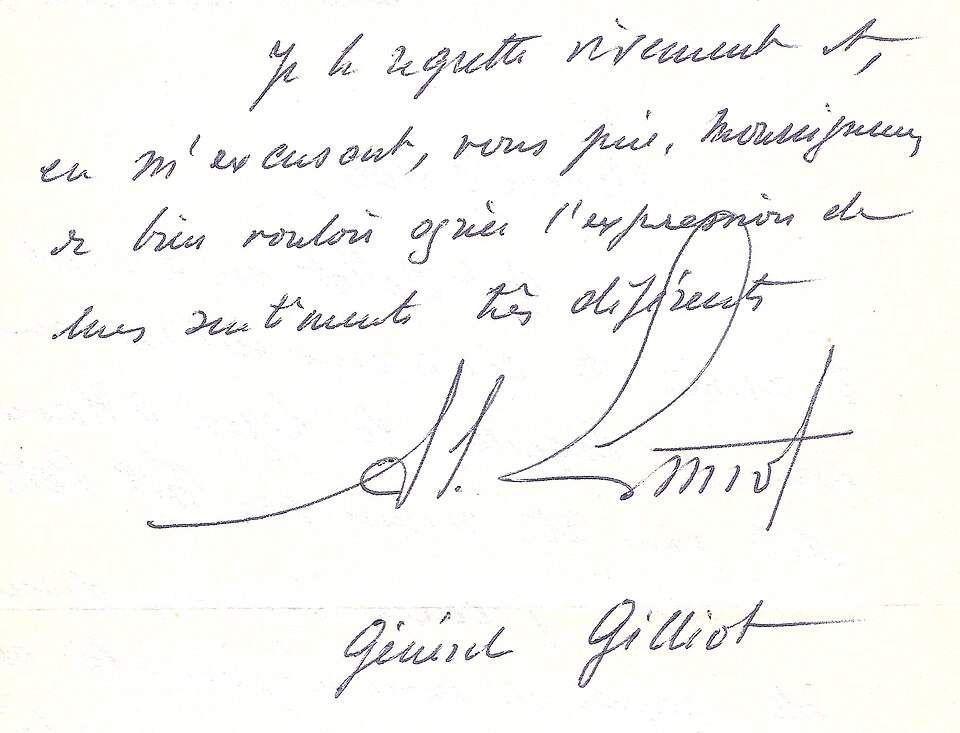 Je le regrette vivement et,
en m'excusant, vous prie, Monseigneur,
de bien vouloir agréer l'expression de
mes sentiments très déférents
Général Gilliot